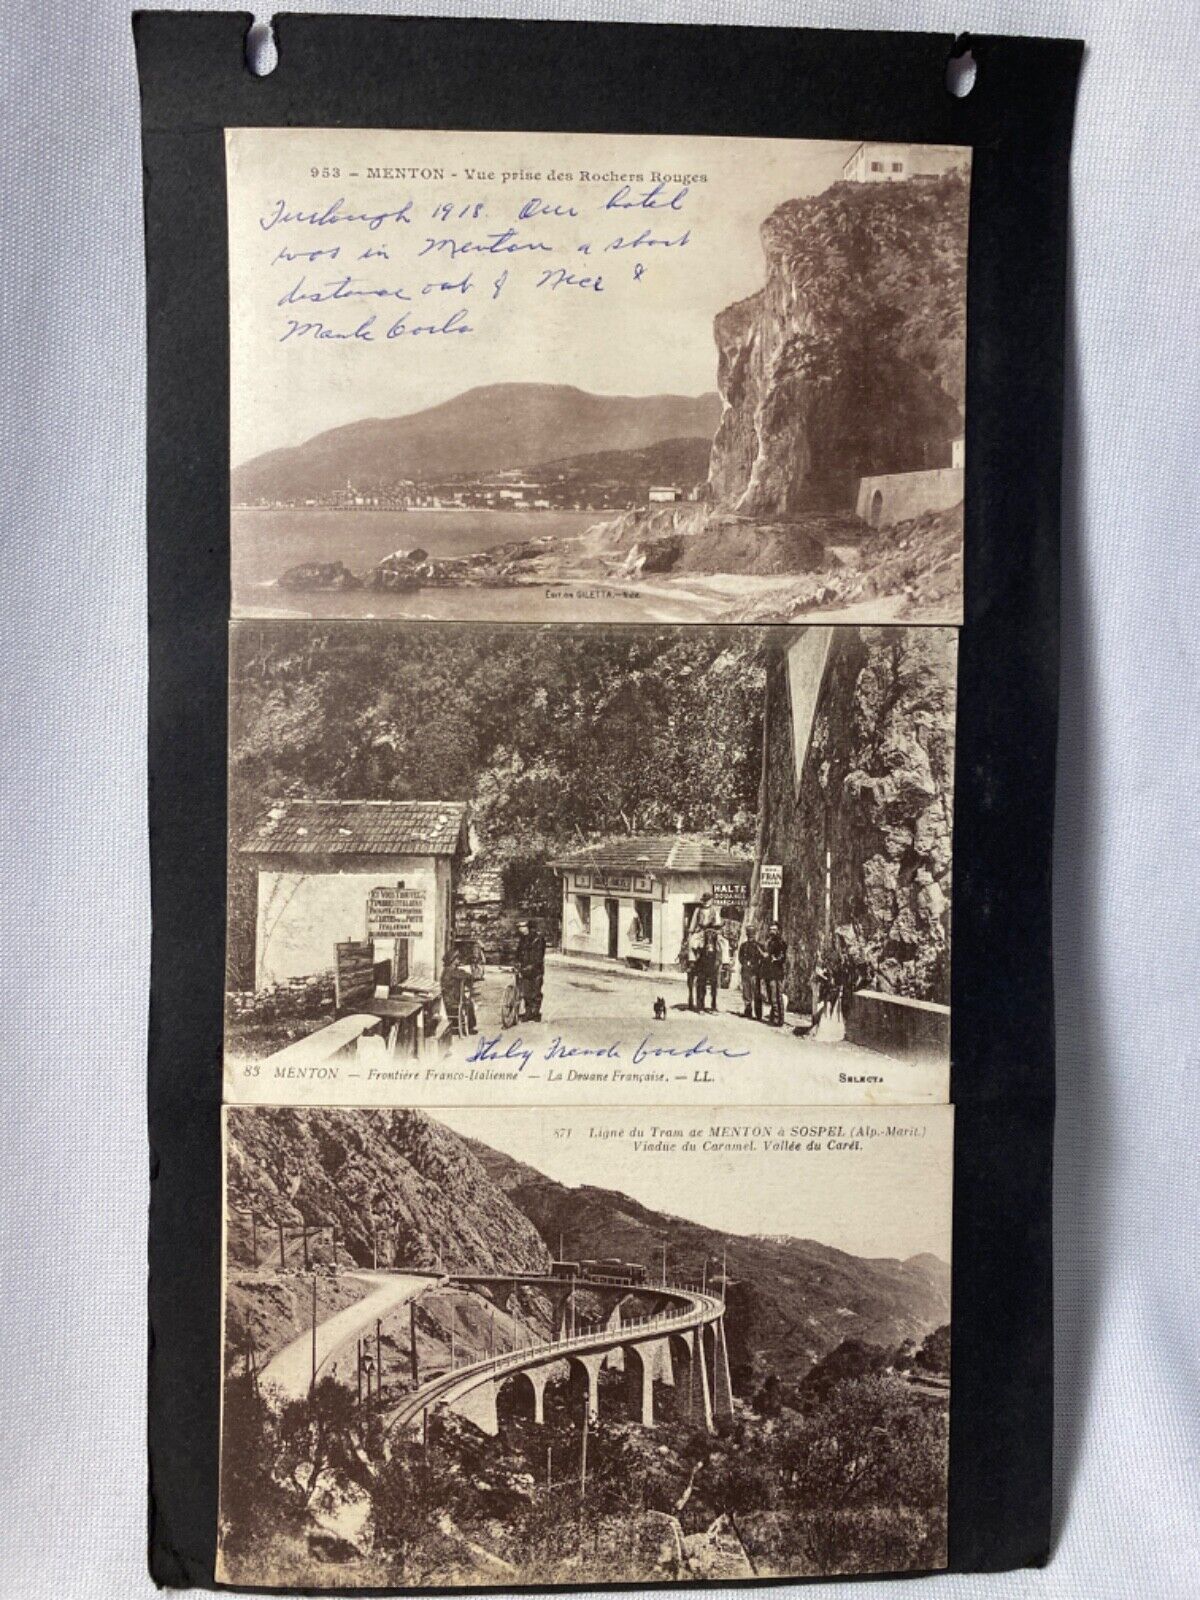 953 – MENTON - Vue prise des Rochers Rouges
Furlough 1918. Our hotel
was in Menton a short
distance out of Nice &
Monte Carlo
EDITION GILETTA.—Nice
ICI VOUS TROUVEZ
TIMBRES ITALIENS
CARTES POSTE
ITALIENNE
HALTE
DOUANES
FRANÇAISES
FRAN
Italy French border
83 MENTON — Frontière Franco-Italienne — La Douane Française. — LL.
SELECTA
871 Ligne du Tram de MENTON à SOSPEL (Alp.-Marit.)
Viaduc du Caramel. Vallée du Careï.